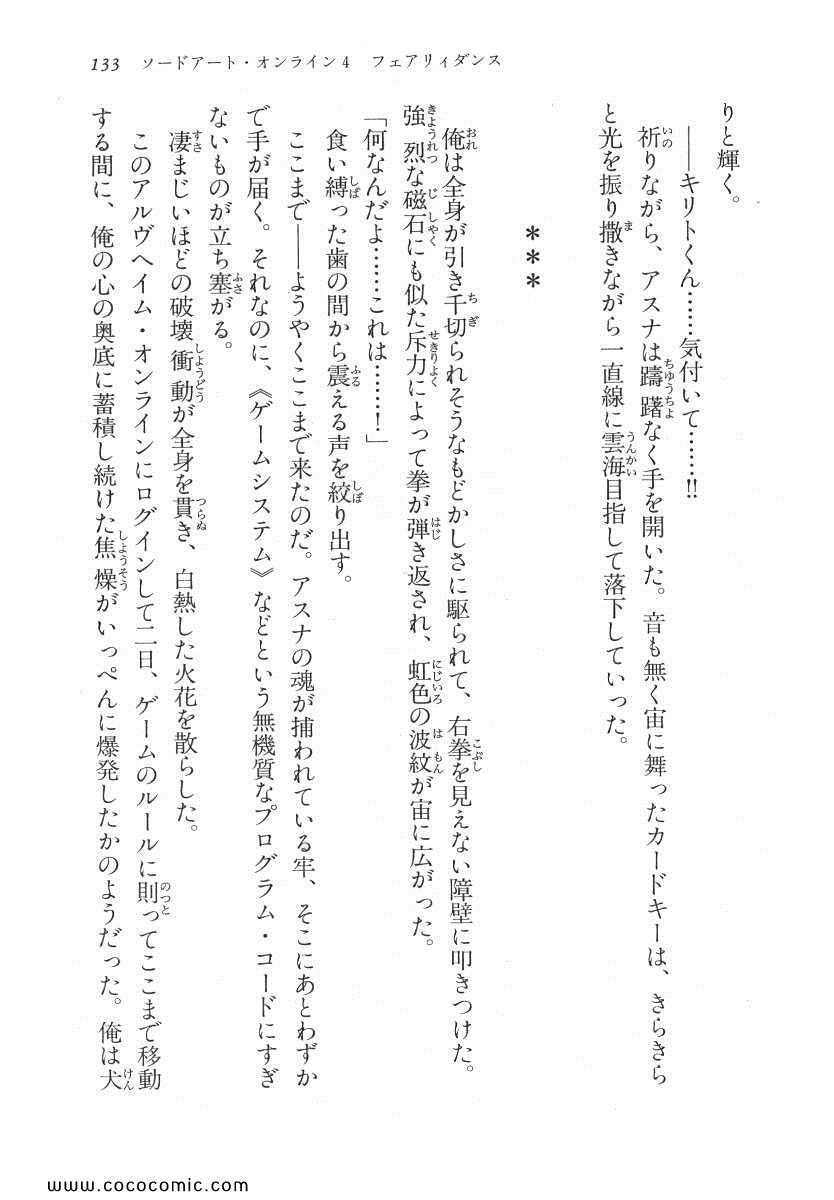 133　ソードアート・オンライン4　フェアリィダンス
りと輝く。
――キリトくん……気付いて……!!
祈りながら、アスナは躊躇なく手を開いた。音も無く宙に舞ったカードキーは、きらきら
と光を振り撒きながら一直線に雲海目指して落下していった。
＊＊＊
俺は全身が引き千切られそうなもどかしさに駆られて、右拳を見えない障壁に叩きつけた。
強烈な磁石にも似た斥力によって拳が弾き返され、虹色の波紋が宙に広がった。
「何なんだよ……これは……！」
食い縛った歯の間から震える声を絞り出す。
ここまで――ようやくここまで来たのだ。アスナの魂が捕われている牢、そこにあとわずか
で手が届く。それなのに、《ゲームシステム》などという無機質なプログラム・コードにすぎ
ないものが立ち塞がる。
凄まじいほどの破壊衝動が全身を貫き、白熱した火花を散らした。
このアルヴヘイム・オンラインにログインして二日、ゲームのルールに則ってここまで移動
する間に、俺の心の奥底に蓄積し続けた焦燥がいっぺんに爆発したかのようだった。俺は犬
www.cococomic.com